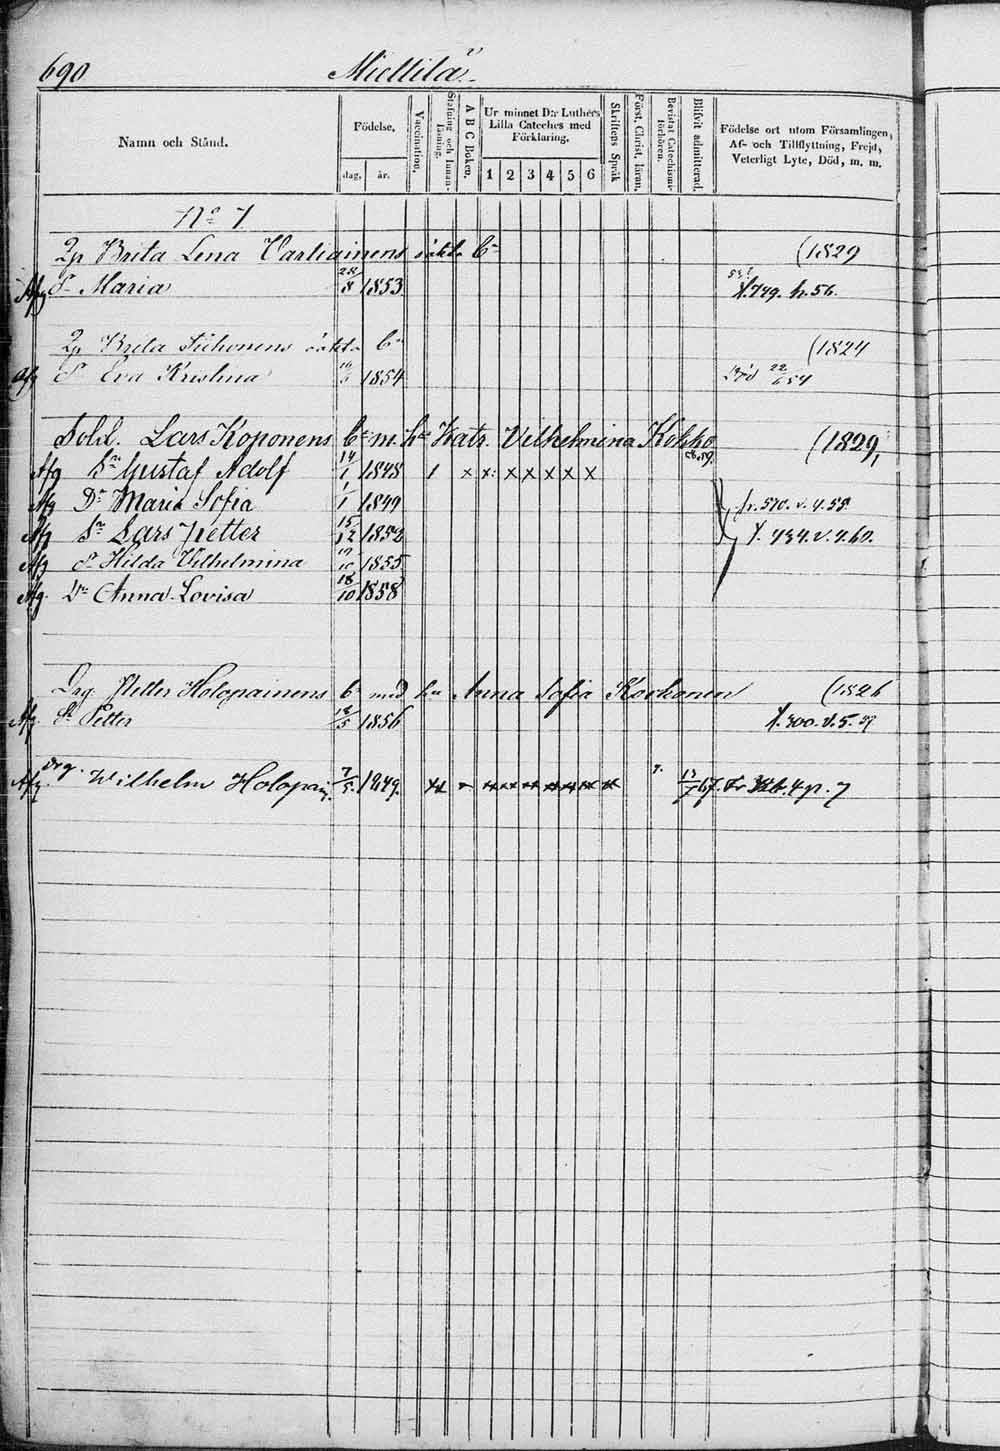 690 Miettilä
Namn och Stånd.
Födelse,
dag,
år.
Vaccination.
Stafning och Innan-läsning.
A B C Boken.
Ur minnet D:r Luthers
Lilla Cateches med
Förklaring.
1 2 3 4 5 6
Skriftens Språk
Först. Christ. läran.
Bevistat Catechismi-förhören.
Blifvit admitterad.
Födelse ort utom Församlingen,
Af- och Tillflyttning, Frejd,
Veterligt Lyte, Död, m. m.
No 7
Brita Lena Vartiainens oäkta b (1829
Afg Maria 28/8 1853 p. 56.
Brita oäkta b (1824
Afg Eva Kristina 1854 Död 22/6 54
Sold. Lars Koponens b. m. h. Katr. Vilhelmina Kokko (1829,
Afg Sn Gustaf Adolf 14/1 1848 1 x x x x x x x x
Afg Dr Maria Sofia 1/1 1849 p. 570. v. 4. 55
Afg Sn Lars Petter 15/12 1852 434. v.
Afg Hilda Vilhelmina 1855
Afg Dr Anna Lovisa 18/10 1858
Drg. Petter Holopainens b med hu Anna Sofia Korhonen (1826
Afg. Petter 1856 300. v. 5.
Afg. Drg. Wilhelm Holopain. 7/5 1849. 67. p. 7